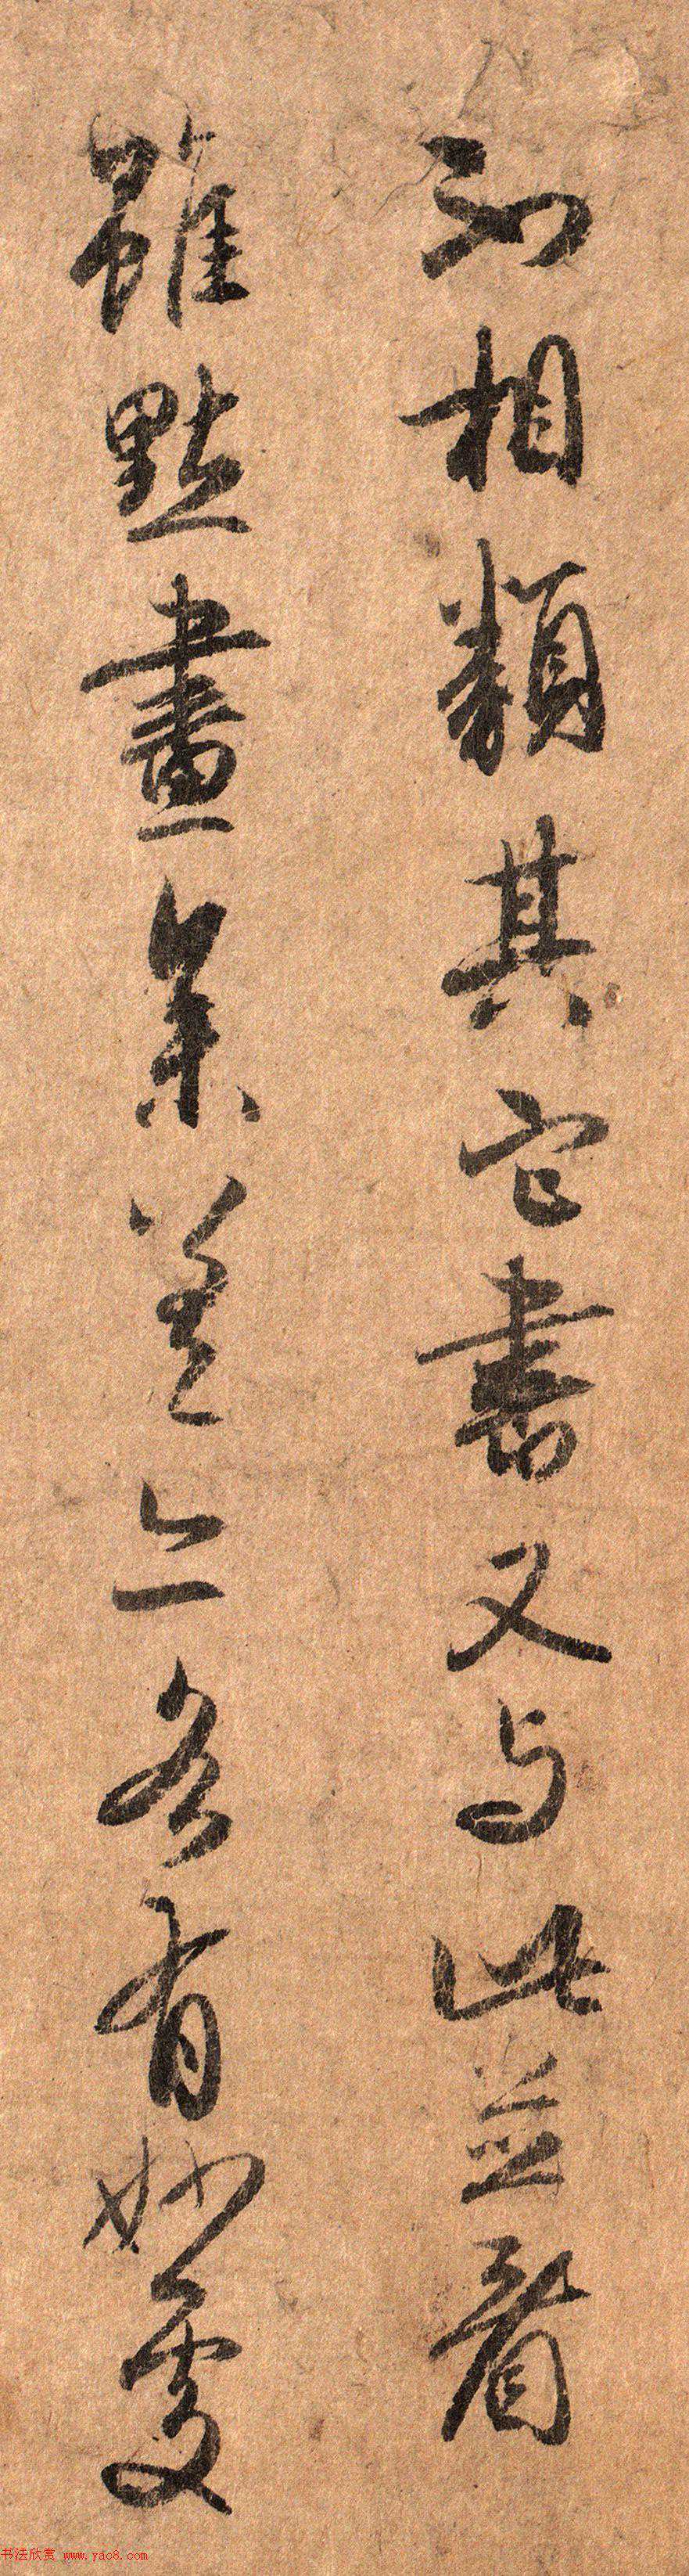 不相類其它書又与此並看
雖點畫參差亦各有妙處
书法欣赏 www.yac8.com